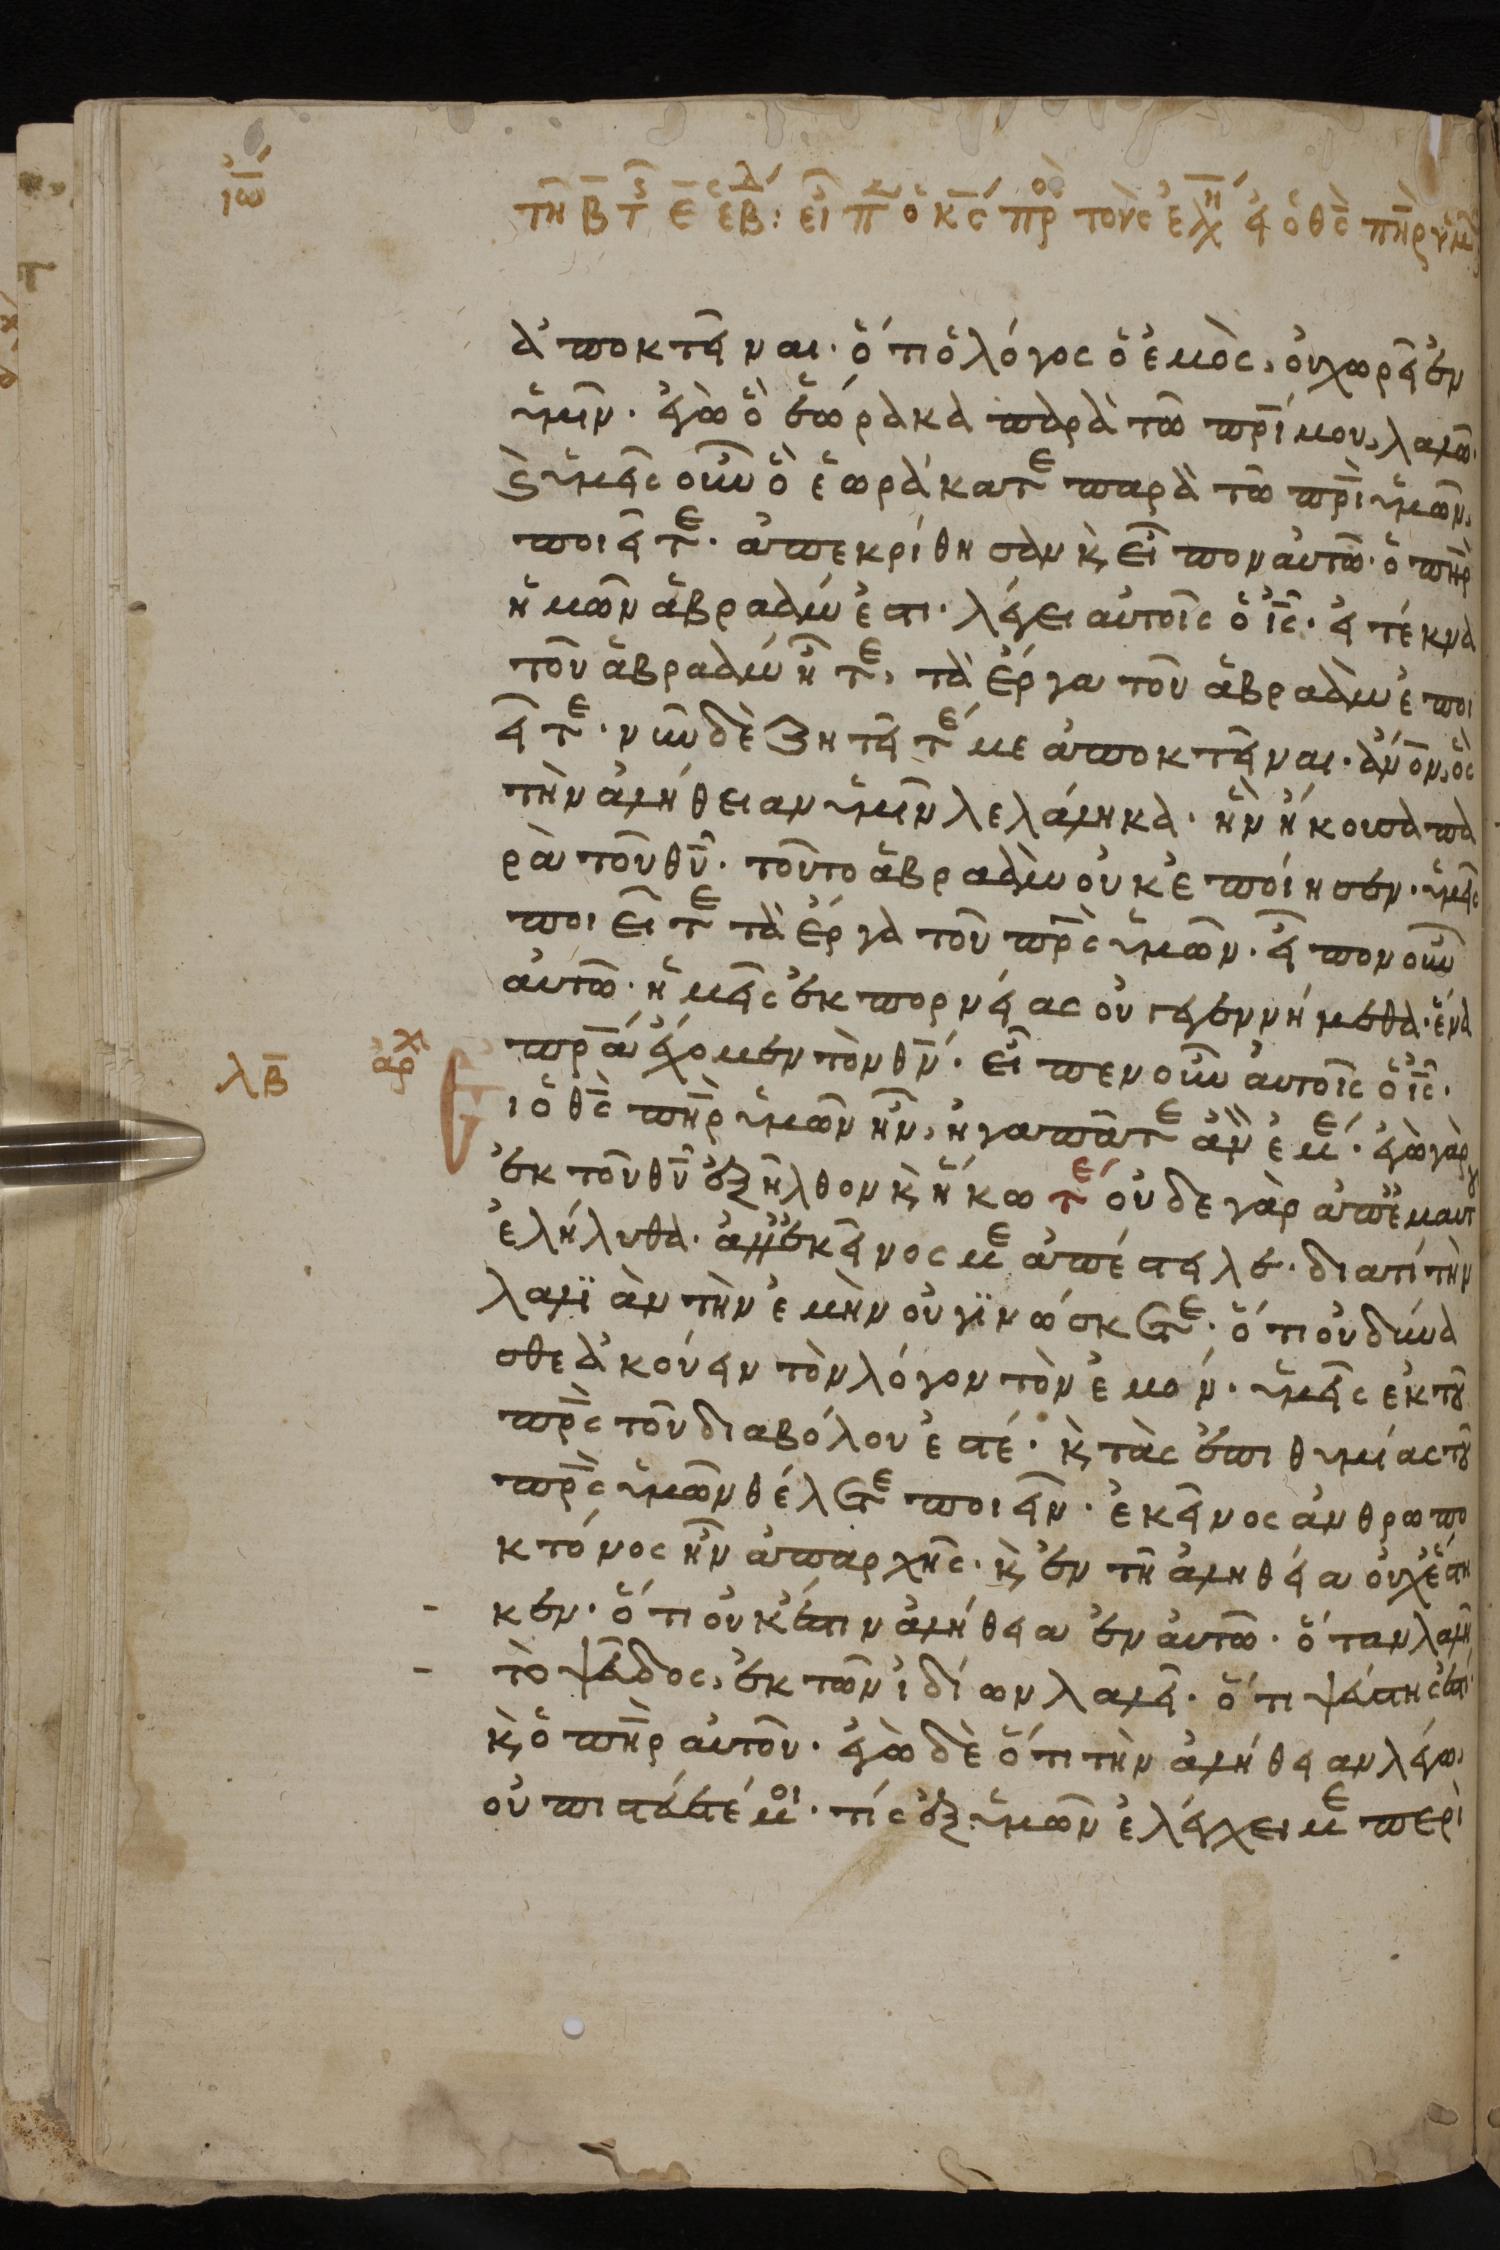 ἰω
τῆ β τ ς ε ἑβδ: εἶπ ὁ κς πρ τοὺς ἐληλ ἰουδ εἰ ὁ θς πηρ ὑμῶ
ἀποκτεῖναι· ὅτι ὁ λόγος ὁ ἐμὸς, οὐ χωρεῖ ἐν
ὑμῖν. ἐγὼ ὃ ἑώρακα παρὰ τῶ πρί μου, λαλῶ·
καὶ ὑμεῖς οὖν ὃ ἑωράκατε παρὰ τῶ πρὶ ὑμῶν,
ποιεῖτε. ἀπεκρίθησαν κ εἶπον αὐτῶ· ὁ πηρ
ἡμῶν ἁβραάμ ἐστι. λέγει αὐτοῖς ὁ ις· εἰ τέκνα
τοῦ ἁβραάμ ἦτε, τὰ ἔργα τοῦ ἁβραὰμ ἐποι
εῖτε. νῦν δὲ ζητεῖτέ με ἀποκτεῖναι. ἄνον, ὃς
τὴν ἀλήθειαν ὑμῖν λελάληκα. ἣν ἤκουσα πα
ρὰ τοῦ θυ. τοῦτο ἁβραὰμ οὐκ ἐποίησεν. ὑμεῖς
ποιεῖτε τὰ ἔργα τοῦ πρς ὑμῶν. εἶπον οὖν
αὐτῶ· ἡμεῖς ἐκ πορνείας οὐ γεγεννήμεθα. ἕνα
πρα ἔχομεν τὸν θν. εἶπεν οὖν αὐτοῖς ὁ ις.
λβ ἀρχ Ει ὁ θς πηρ ὑμῶν ἦν, ἠγαπᾶτε ἂν ἐμέ. ἐγὼ γὰρ
ἐκ τοῦ θυ ἐξῆλθον κ ἥκω τε οὐδε γὰρ ἀπ ἐμαυτου
ἐλήλυθα. ἀλλ ἐκεῖνός με ἀπέστειλε. διατί τὴν
λαλϊὰν τὴν ἐμὴν οὐ γϊνώσκετε. ὅτι οὐ δύνα
σθε ἀκούειν τὸν λόγον τὸν ἐμόν. ὑμεῖς ἐκ τοῦ
πρς τοῦ διαβόλου ἐστέ. κ τὰς ἐπιθυμίας τοῦ
πρς ὑμῶν θέλετε ποιεῖν. ἐκεῖνος ἀνθρωπο
κτόνος ἦν ἀπαρχῆς. κ ἐν τῆ ἀληθεία οὐχ ἕστη
κεν. ὅτι οὐκ ἔστιν ἀλήθεια ἐν αὐτῶ. ὅταν λαλῆ
τὸ ψεῦδος, ἐκ τῶν ἰδίων λαλεῖ. ὅτι ψεύστης ἐστι
κ ὁ πηρ αὐτοῦ. ἐγὼ δὲ ὅτι τὴν ἀλήθειαν λέγω,
οὐ πιστεύετέ μοι. τίς ἐξ ὑμῶν ἐλέγχει με περὶ